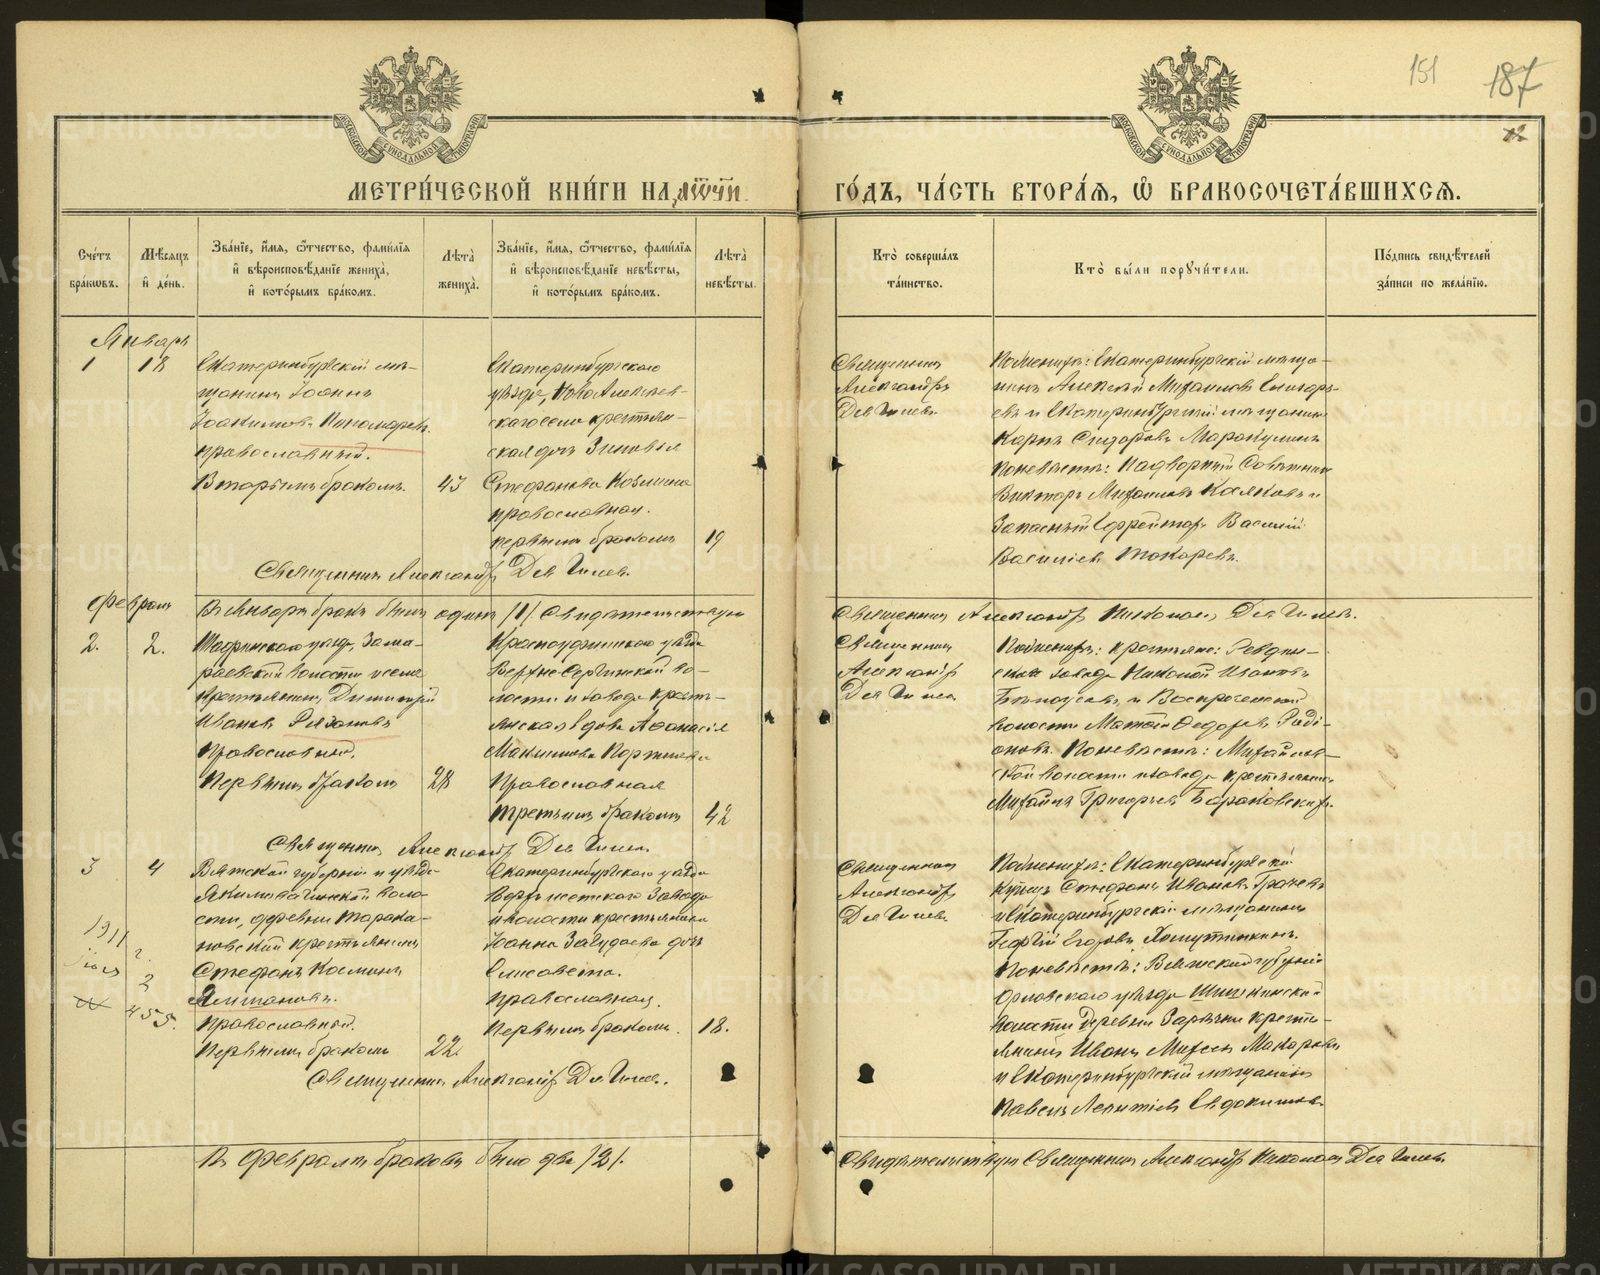 151
187
МОСКОВСКОЙ СѴНОДАЛЬНОЙ ТИПОГРАФІИ
МОСКОВСКОЙ СѴНОДАЛЬНОЙ ТИПОГРАФІИ
МЕТРИ́ЧЕСКОЙ КНИ́ГИ НА
ГО́ДЪ, ЧА́СТЬ ВТОРА́Ѧ, Ѡ҆ БРАКОСОЧЕТА́ВШИХСѦ.
Сче́тъ бра́кѡвъ.
Мѣ́сѧцъ и҆ де́нь.
Зва́нїе, и҆́мѧ, ѻ҆́тчество, фами́лїѧ и҆ вѣроисповѣ́данїе жениха̀, и҆ кото́рымъ бра́комъ.
Лѣта̀ жениха̀.
Зва́нїе, и҆́мѧ, ѻ҆́тчество, фами́лїѧ и҆ вѣроисповѣ́данїе невѣ́сты, и҆ кото́рымъ бра́комъ.
Лѣта̀ невѣ́сты.
Кто̀ соверша́лъ та́инство.
Кто̀ бы́ли порꙋчи́тели.
По́дпись свидѣ́телей за́писи по жела́нїю.
Январь
1
18
Екатеринбургскій мѣ-
щанинъ Іоаннъ
Іоакимовъ Пономаревъ
православный.
Вторымъ бракомъ.
43
Екатеринбургскаго
уѣзда, Ново Алексѣев-
скаго села крестьян-
ская дочь Зиновья
Стефанова Козлина
православная.
первымъ бракомъ
19
Священникъ
Александръ
Дягилевъ
По женихѣ: Екатеринбургскій мѣща-
нинъ Алексѣй Михаиловъ
евъ и Екатеринбургскій мѣщанинъ
Карпъ Сидоровъ Маракулинъ
По невѣстѣ: Надворный Совѣтникъ
Викторъ Михаиловъ и
Запасный Ефрейторъ Василій
Василіевъ Токаревъ.
Священникъ Александръ Дягилевъ.
Февраль
Въ Январѣ бракъ былъ одинъ /1/. Свидѣтельствую
Священникъ Александръ Николаевъ Дягилевъ.
2.
2.
Шадринскаго уѣзда, Зама-
раевской волости и села
крестьянинъ Димитрій
Ивановъ Рязановъ
Православный.
Первымъ бракомъ
28
Красноуфимскаго уѣзда
Верхне Сергинской во-
лости и завода кресть-
янская вдова Аѳанасія
Максимова
Православная
третьимъ бракомъ
42
Священникъ
Александръ
Дягилевъ
По женихѣ: крестьяне: Ревдин-
скаго завода Николай Ивановъ
и Воскресенской
волости Матѳей Ѳедоровъ Роді-
оновъ. По невѣстѣ: Михайлов-
ской волости и завода крестьянинъ
Михаилъ Григорьевъ Барановскихъ.
Священникъ Александръ Дягилевъ
3
4
Вятской губерніи и уѣзда
воло-
сти, деревни Тарака-
новской крестьянинъ
Стефанъ Косминъ
Православный.
Первымъ бракомъ
22.
Екатеринбургскаго уѣзда
Верхъ Исетскаго Завода
и волости крестьянина
Іоанна дочь
Елисавета.
православная.
Первымъ бракомъ.
18.
Священникъ
Александръ
Дягилевъ.
По женихѣ: Екатеринбургскій
Купецъ Стефанъ Ивановъ Грачевъ
и Екатеринбургскій мѣщанинъ
Георгій Егоровъ
По невѣстѣ: Вятской губерніи
Орловскаго уѣзда
волости деревни кресть-
янинъ Иванъ Макаровъ
и Екатеринбургскій мѣщанинъ
Павелъ Евдокимовъ.
1911
г.
2
455.
Священникъ Александръ Дягилевъ.
Въ Февралѣ браковъ было два /2/.
Свидѣтельствую Священникъ Александръ Николаевъ Дягилевъ.